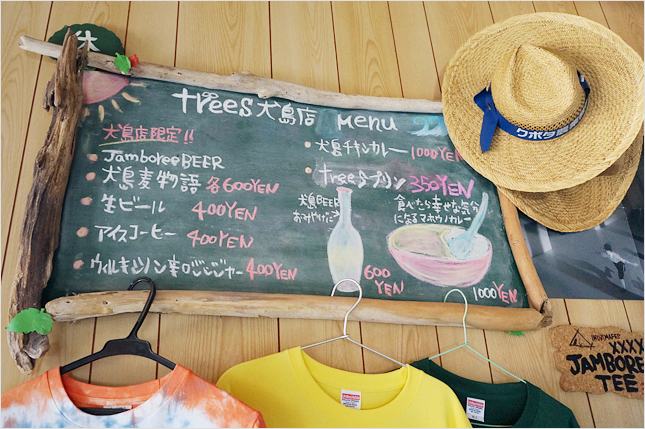 休
trees犬島店 Menu
犬島店限定!!
JamboreeBEER
犬島麦物語 各600YEN
生ビール 400YEN
アイスコーヒー 400YEN
ウィルキンソン辛口ジンジャー 400YEN
犬島チキンカレー 1000YEN
treesプリン 350YEN
犬島BEER
おみやげに♪
600
YEN
食べたら幸せな気分
になるマホウノカレー
1000YEN
クボタ
JAMBOREE
TEE
XXXX